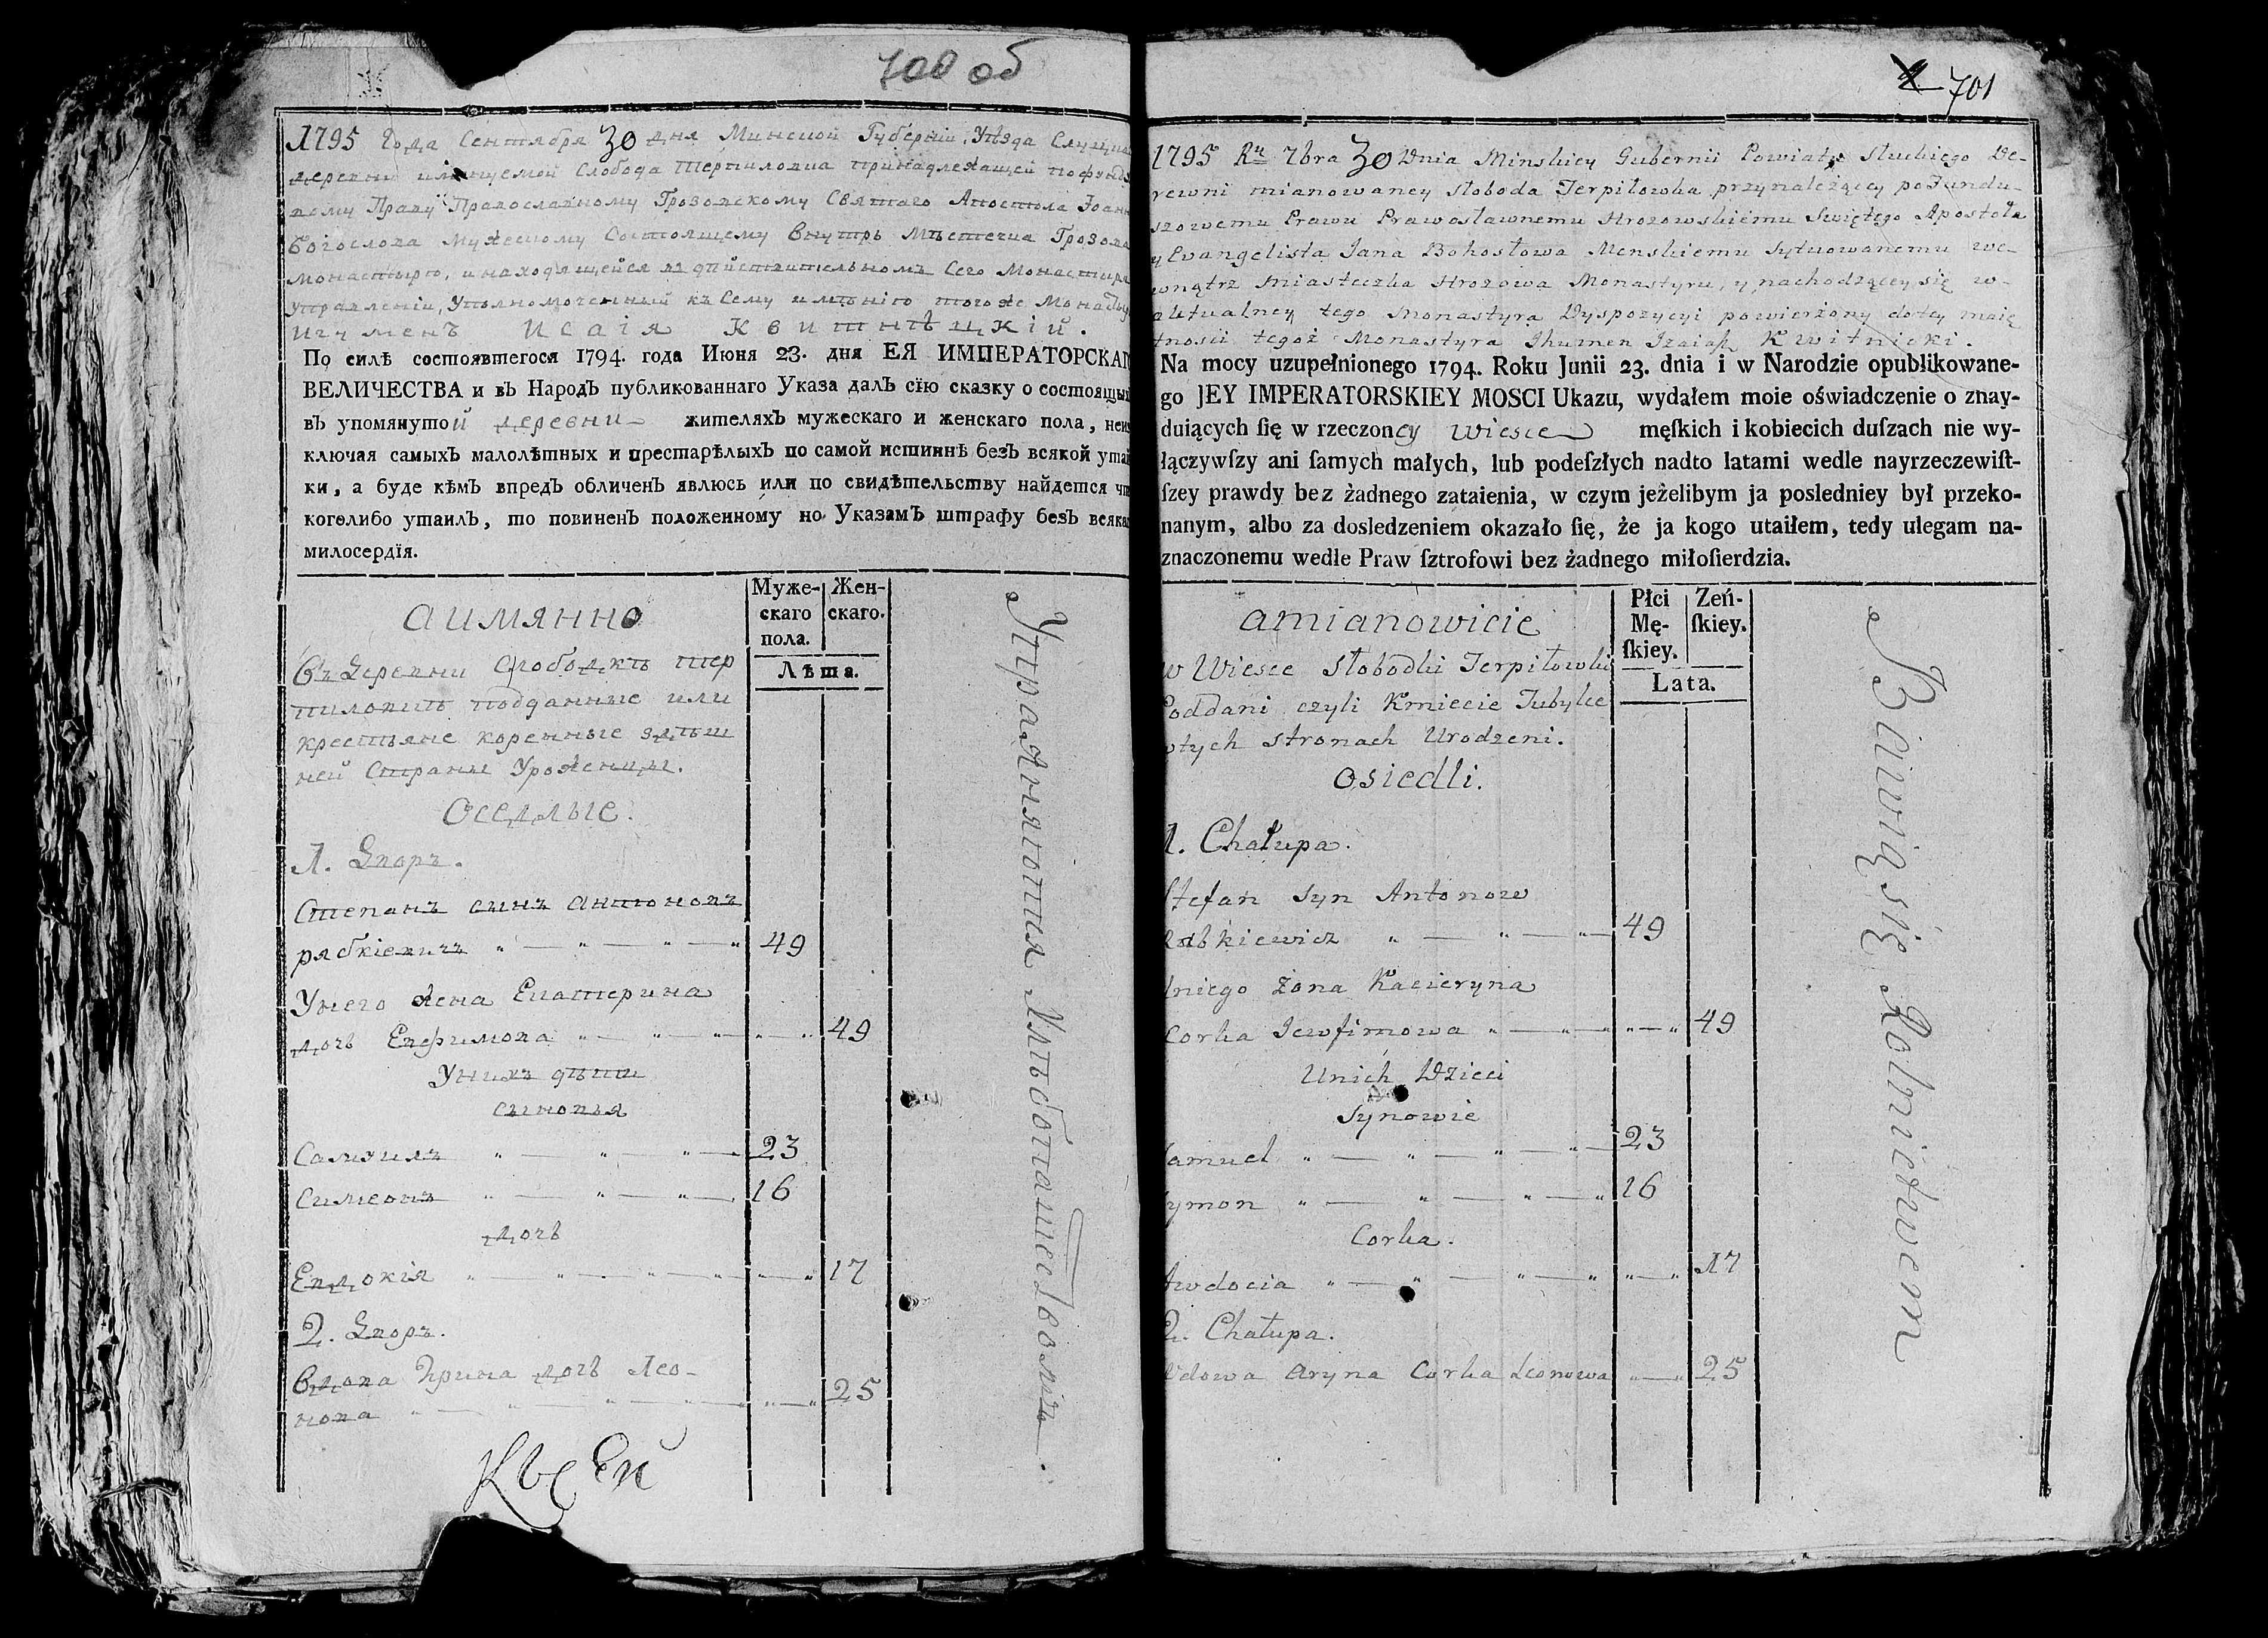 700 об
1795 Года Сентября 30 дня Минской Губерніи, Уѣзда Слуцка
деревни имянуемой Слобода Терпиловка принадлежащей пофунду
вому Праву Православному Грозовскому Святаго Апостола Іоанн
Богослова мужескому Состоящему Внутрь Мѣстечка Грозова
монастырю, и находящейся въ дѣйствительномъ Сего Монастыря
управленіи, Уполномоченный къ Сему имѣнію того же Монасты
Игуменъ Исаія Квитнѣцкій.
По силѣ состоявшегося 1794. года Июня 23. дня ЕЯ ИМПЕРАТОРСКАГ
ВЕЛИЧЕСТВА и въ Народъ публикованнаго Указа далъ сїю сказку о состоящи
въ упомянутой деревни жителяхъ мужескаго и женскаго пола, неи
ключая самыхъ малолѣтныхъ и престарѣлыхъ по самой истиннѣ безъ всякой утай
ки, а буде кѣмъ впредъ обличенъ явлюсь или по свидѣтельству найдется чт
коголибо утаилъ, то повиненъ положенному по Указамъ штрафу безъ всяка
милосердїя.
Муже-
скаго
пола.
Жен-
скаго.
Лѣта.
аимянно
Въ Деревни Слободкѣ тер
пиловкѣ подданные или
крестьяне коренные здѣш
ней Страны Уроженцы.
Оседлые.
1. Дворъ.
Степанъ сынъ антоновъ
рабкіевичъ " — " — " — " 49
Унего жена Екатерина
дочь Евфимова " — " — " — " 49
Унихъ дѣти
сыновья
Самуилъ " — " — " — 23
Симеонъ " — " — " — 16
дочь
Евдокія " — " — " — " — " 17
2. Дворъ.
Вдова Ирина дочь Лео-
нова " — " — " — " — " 25
Управляется Хлѣбопашествомъ.
701
1795 Ru 7bra 30 Dnia Minskiey Gubernii Powiatu Sluckiego De-
rewni mianowaney Słoboda Terpiłowka przynależący po Fundu-
szowemu Prawu Prawosławnemu Hrozowskiemu Swiętego Apostoła
y Ewangelista Jana Bohosłowa Menskiemu Sytuowanemu we-
wnątrz Miasteczka Hrozowa Monastyru, y nachodzącey się w-
aktualney tego Monastyra Dyspozycyi powierzony do tey maię
tnosii tegoż Monastyra Jhumen Izaiah Kwitnicki.
Na mocy uzupełnionego 1794. Roku Junii 23. dnia i w Narodzie opublikowane-
go JEY IMPERATORSKIEY MOSCI Ukazu, wydałem moie oświadczenie o znay-
duiących ſię w rzeczoney wiesce męſkich i kobiecich duſzach nie wy-
łączywſzy ani ſamych małych, lub podeſzłych nadto latami wedle nayrzeczewiſt-
ſzey prawdy bez żadnego zataienia, w czym jeżelibym ja posledniey był przeko-
nanym, albo za dosledzeniem okazało ſię, że ja kogo utaiłem, tedy ulegam na-
znaczonemu wedle Praw ſztrofowi bez żadnego miłoſierdzia.
Płci
Mę-
ſkiey.
Zeń-
ſkiey.
Lata.
amianowicie
w Wiesce Słobodki Terpiłowki
Poddani czyli Kmiecie Tubylce
wtych Stronach Urodzeni.
Osiedli.
1. Chałupa.
Stefan Syn Antonow
Rabkiewicz " — " — " — 49
Uniego Żona Kacieryna
Corka Jewfimowa " — " — " — " 49
Unich Dzieci
Synowie
Samuel " — " — " — " — 23
Symon " — " — " — " 16
Corka.
Awdocia " — " — " — " — " 17
2. Chałupa.
Wdowa Aryna Corka Leonowa " — " 25
Bawią się Rolnictwem